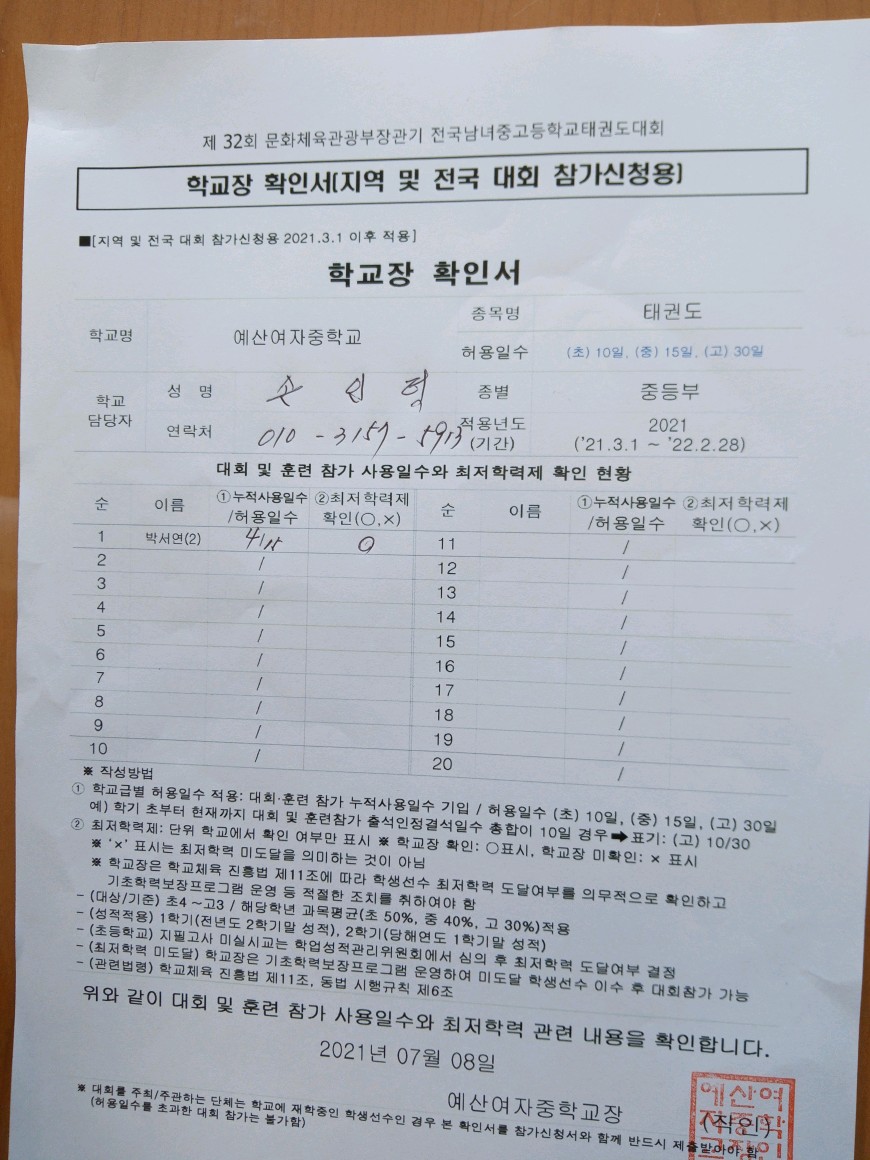 제 32회 문화체육관광부장관기 전국남녀중고등학교태권도대회
학교장 확인서(지역 및 전국 대회 참가신청용)
■[지역 및 전국 대회 참가신청용 2021.3.1 이후 적용]
학교장 확인서
학교명 예산여자중학교 종목명 태권도
허용일수 (초) 10일, (중) 15일, (고) 30일
학교 담당자 성 명 손 인 혁 종별 중등부
연락처 010 - 3157 - 5913 적용년도 (기간) 2021 ('21.3.1 ~ '22.2.28)
대회 및 훈련 참가 사용일수와 최저학력제 확인 현황
순 이름 ①누적사용일수 /허용일수 ②최저학력제 확인(○,×) 순 이름 ①누적사용일수 /허용일수 ②최저학력제 확인(○,×)
1 박서연(2) 4/15 ○ 11 /
2 / 12 /
3 / 13 /
4 / 14 /
5 / 15 /
6 / 16 /
7 / 17 /
8 / 18 /
9 / 19 /
10 / 20 /
※ 작성방법
① 학교급별 허용일수 적용: 대회·훈련 참가 누적사용일수 기입 / 허용일수 (초) 10일, (중) 15일, (고) 30일
예) 학기 초부터 현재까지 대회 및 훈련참가 출석인정결석일수 총합이 10일 경우➡표기: (고) 10/30
② 최저학력제: 단위 학교에서 확인 여부만 표시 ※ 학교장 확인: ○표시, 학교장 미확인: × 표시
※ '×' 표시는 최저학력 미도달을 의미하는 것이 아님
※ 학교장은 학교체육 진흥법 제11조에 따라 학생선수 최저학력 도달여부를 의무적으로 확인하고
기초학력보장프로그램 운영 등 적절한 조치를 취하여야 함
- (대상/기준) 초4 ~ 고3 / 해당학년 과목평균(초 50%, 중 40%, 고 30%)적용
- (성적적용) 1학기(전년도 2학기말 성적), 2학기(당해연도 1학기말 성적)
- (초등학교) 지필고사 미실시교는 학업성적관리위원회에서 심의 후 최저학력 도달여부 결정
- (최저학력 미도달) 학교장은 기초학력보장프로그램 운영하여 미도달 학생선수 이수 후 대회참가 가능
- (관련법령) 학교체육 진흥법 제11조, 동법 시행규칙 제6조
위와 같이 대회 및 훈련 참가 사용일수와 최저학력 관련 내용을 확인합니다.
2021년 07월 08일
예산여자중학교장 (직인)
예산여
자중학
교장인
※ 대회를 주최/주관하는 단체는 학교에 재학중인 학생선수인 경우 본 확인서를 참가신청서와 함께 반드시 제출받아야 함
(허용일수를 초과한 대회 참가는 불가함)